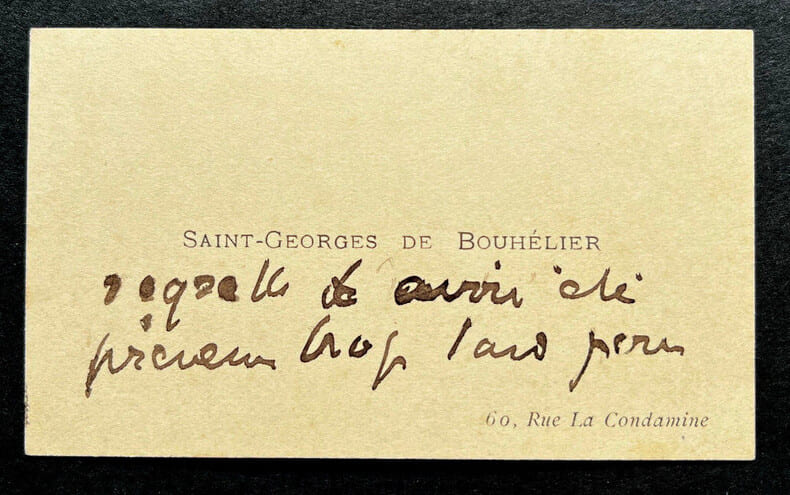 SAINT-GEORGES DE BOUHÉLIER
regrette d'avoir été
prévenu trop tard pour
60, Rue La Condamine